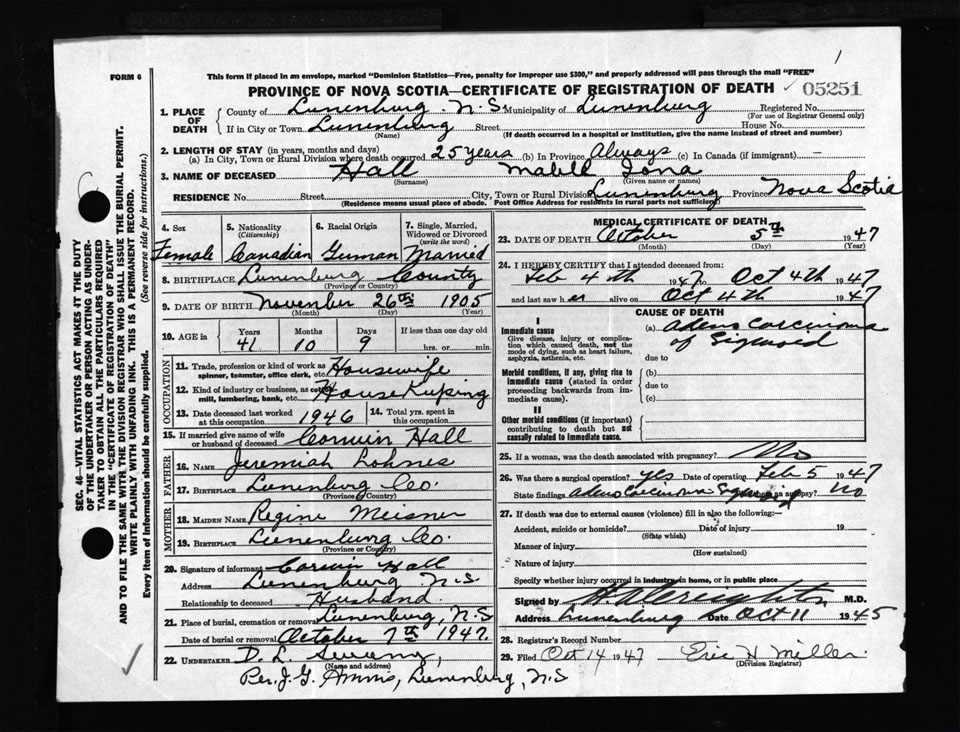 1
FORM 6
This form if placed in an envelope, marked "Dominion Statistics—Free, penalty for improper use $300," and properly addressed will pass through the mail "FREE"
PROVINCE OF NOVA SCOTIA—CERTIFICATE OF REGISTRATION OF DEATH 05251
1. PLACE OF DEATH
County of Lunenburg N.S. Municipality of Lunenburg Registered No.
(For use of Registrar General only)
If in City or Town Lunenburg Street House No.
(Name) (If death occurred in a hospital or institution, give the name instead of street and number)
2. LENGTH OF STAY (in years, months and days)
(a) In City, Town or Rural Division where death occurred 25 years (b) In Province Always (c) In Canada (if immigrant) —
3. NAME OF DECEASED Hall Mable Iona
(Surname) (Given name or names)
RESIDENCE No. Street City, Town or Rural Division Lunenburg Province Nova Scotia
(Residence means usual place of abode. Post Office Address for residents in rural parts not sufficient)
4. Sex 5. Nationality 6. Racial Origin 7. Single, Married, Widowed or Divorced
(Citizenship) (write the word)
Female Canadian German Married
8. BIRTHPLACE Lunenburg County
(Province or County)
9. DATE OF BIRTH November 26th 1905
(Month) (Day) (Year)
10. AGE in Years Months Days If less than one day old
41 10 9 hrs. or min.
OCCUPATION
11. Trade, profession or kind of work as spinner, teamster, office clerk, etc. Housewife
12. Kind of industry or business, as cotton mill, lumbering, bank, etc. House Keeping
13. Date deceased last worked at this occupation 1946 14. Total yrs. spent in this occupation
15. If married give name of wife or husband of deceased Corwin Hall
FATHER
16. NAME Jeremiah Lohnes
17. BIRTHPLACE Lunenburg Co.
(Province or Country)
MOTHER
18. MAIDEN NAME Regine Meisner
19. BIRTHPLACE Lunenburg Co.
(Province or Country)
20. Signature of informant Corwin Hall
Address Lunenburg N.S
Relationship to deceased Husband
21. Place of burial, cremation or removal Lunenburg, N.S
Date of burial or removal October 7th 1947.
22. UNDERTAKER D. L.
(Name and address)
Per. J. G. Lunenburg, N.S
MEDICAL CERTIFICATE OF DEATH
23. DATE OF DEATH October 5th 1947
(Month) (Day) (Year)
24. I HEREBY CERTIFY that I attended deceased from:
Feb 4th 1947 to Oct 4th 1947
and last saw her alive on Oct 4th 1947
CAUSE OF DEATH
I
Immediate cause (a) Adeno Carcinoma of Sigmoid
Give disease, injury or complication which caused death, not the mode of dying, such as heart failure, asphyxia, asthenia, etc.
due to
Morbid conditions, if any, giving rise to immediate cause (stated in order proceeding backwards from immediate cause).
(b)
due to
(c)
II
Other morbid conditions (if important) contributing to death but not causally related to immediate cause.
25. If a woman, was the death associated with pregnancy? No
26. Was there a surgical operation? yes Date of operation Feb 5 1947
State findings Adeno Carcinoma Sigmoid Was there an autopsy? No
27. If death was due to external causes (violence) fill in also the following:—
Accident, suicide or homicide? Date of injury 19
(State which)
Manner of injury
(How sustained)
Nature of injury
Specify whether injury occurred in industry, in home, or in public place
Signed by H. A. Creighton M.D.
Address Lunenburg Date Oct 11 1945
28. Registrar's Record Number
29. Filed Oct 14 1947 Eric H Miller.
(Division Registrar)
SEC. 46—VITAL STATISTICS ACT MAKES IT THE DUTY
OF THE UNDERTAKER OR PERSON ACTING AS UNDER-
TAKER TO OBTAIN ALL THE PARTICULARS REQUIRED
IN THE "CERTIFICATE OF REGISTRATION OF DEATH"
AND TO FILE THE SAME WITH THE DIVISION REGISTRAR WHO SHALL ISSUE THE BURIAL PERMIT.
WRITE PLAINLY WITH UNFADING INK. THIS IS A PERMANENT RECORD.
Every item of information should be carefully supplied. (See reverse side for instructions.)